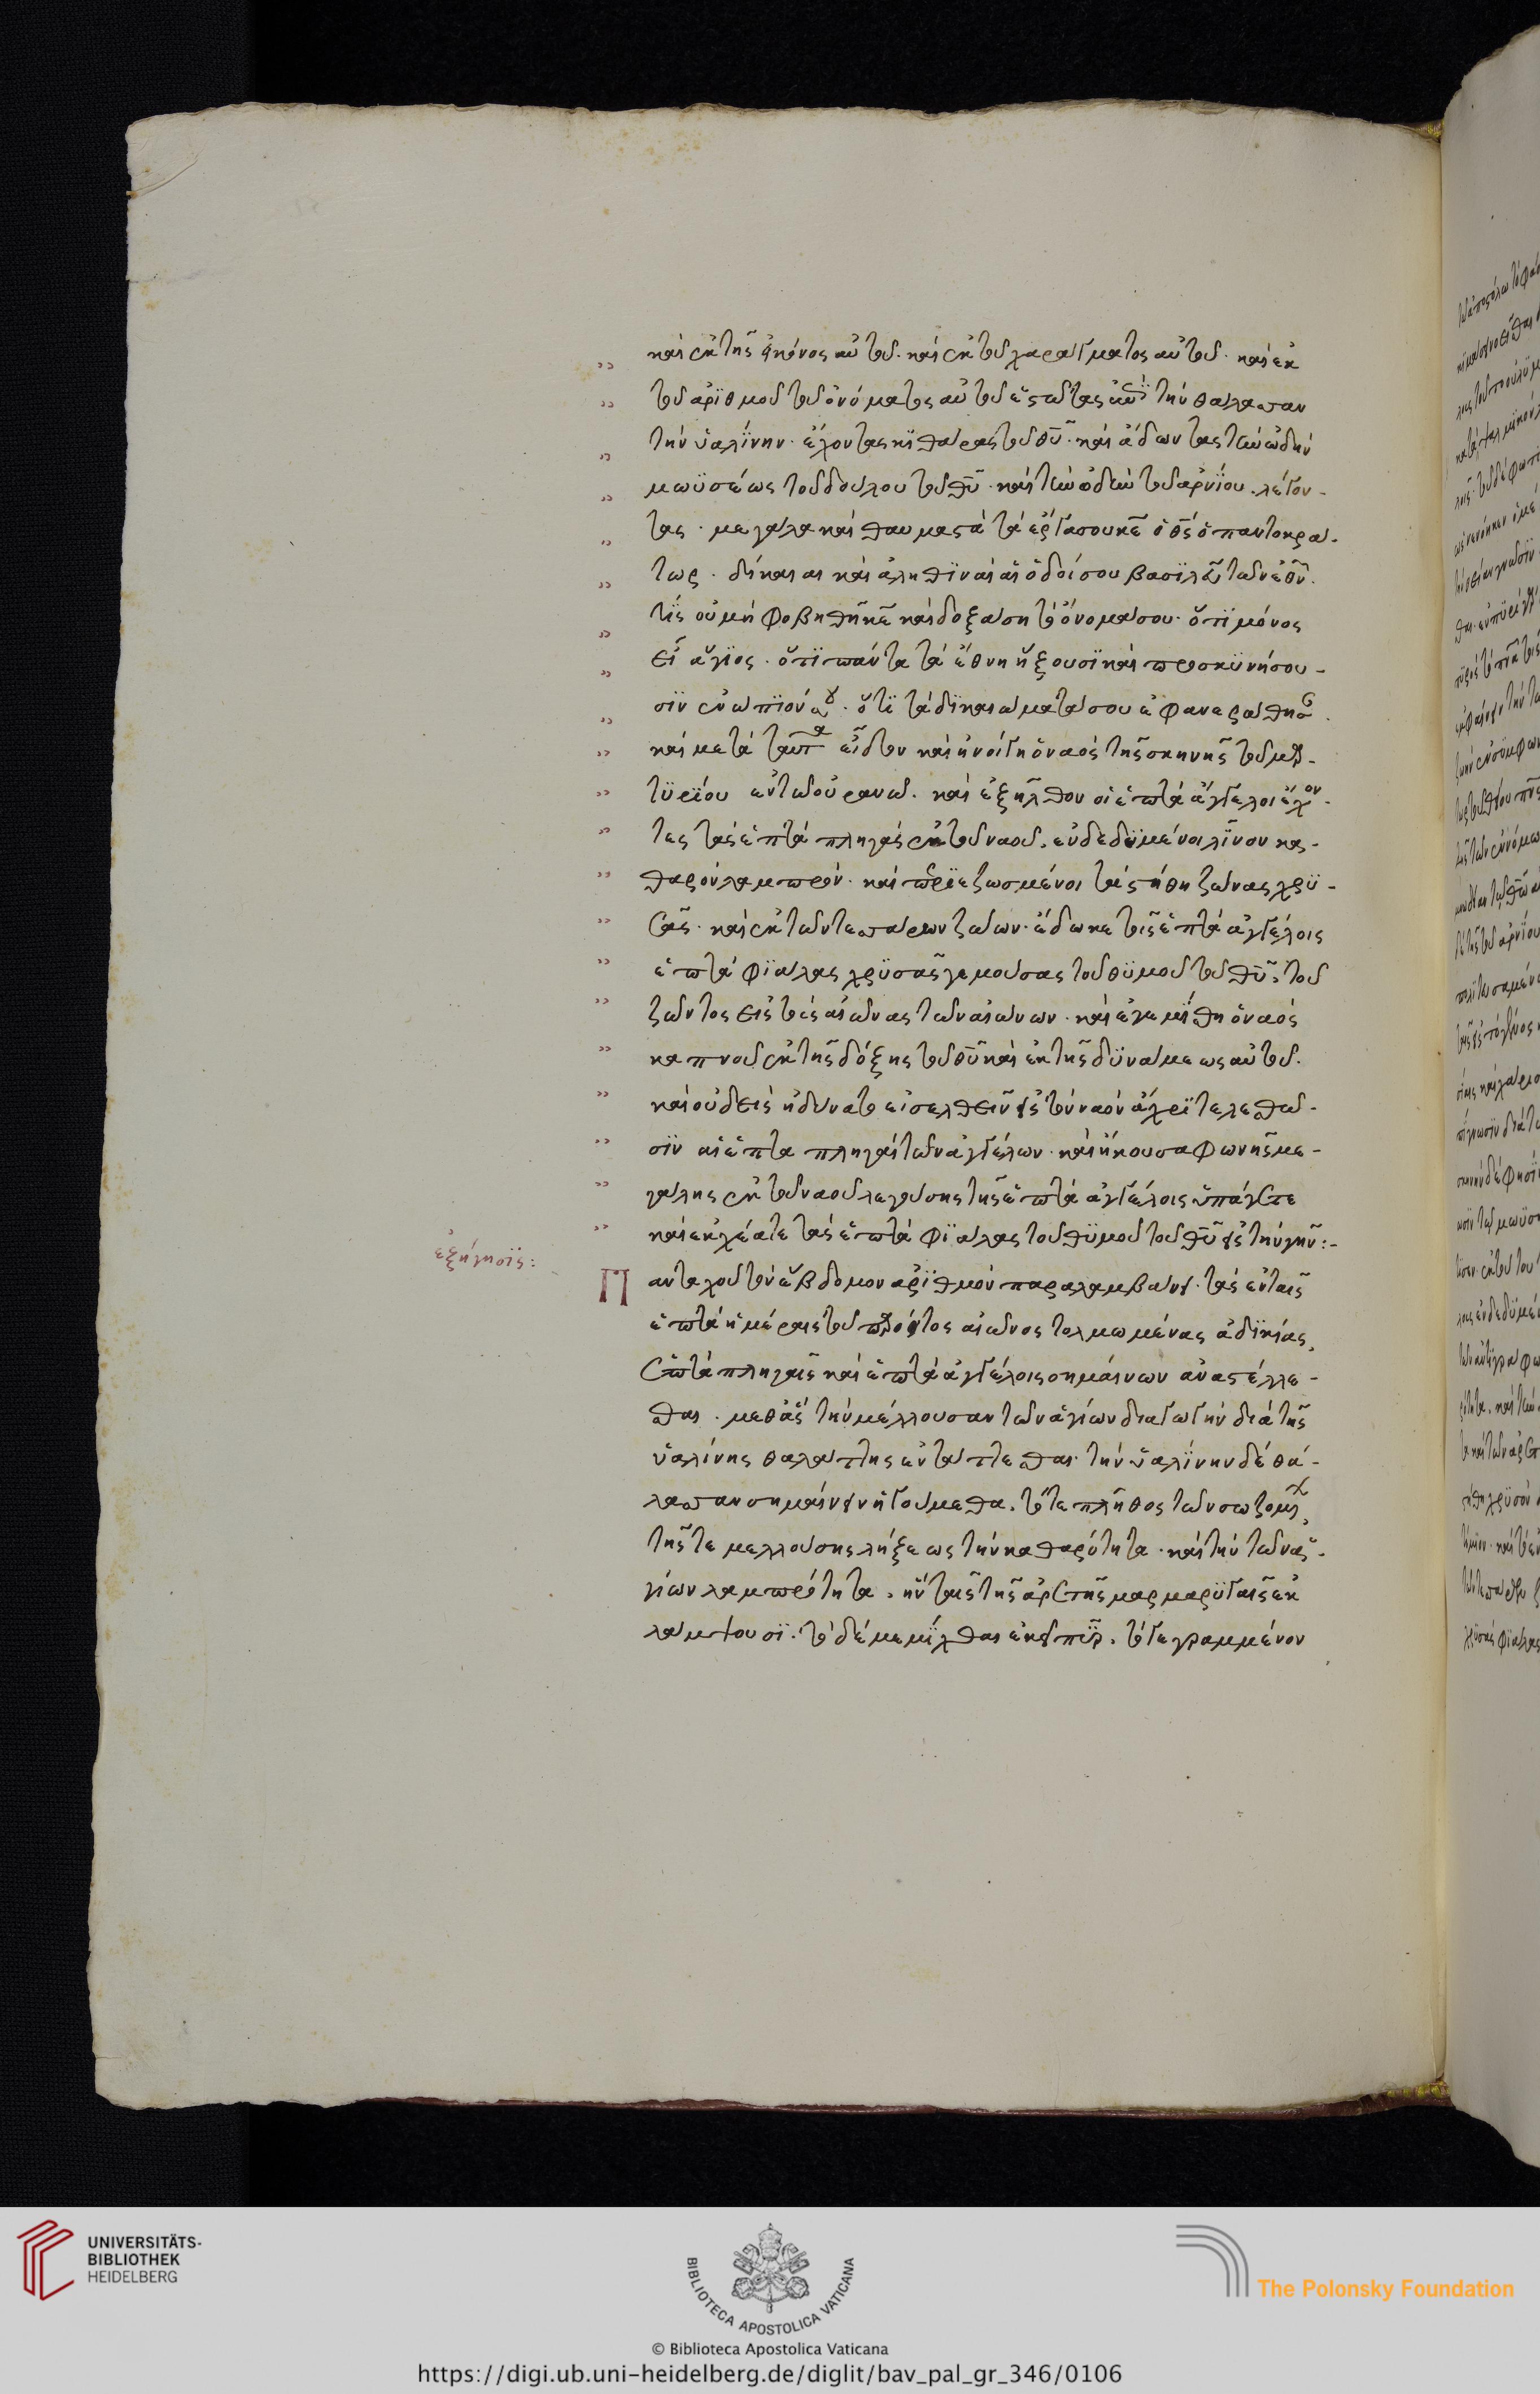 καὶ ἐκ τῆς εἰκόνος αὐτοῦ. καὶ ἐκ τοῦ χαράγματος αὐτοῦ. καὶ ἐκ
τοῦ ἀριθμοῦ τοῦ ὀνόματος αὐτοῦ ἑστῶτας ἐπὶ τὴν θάλασσαν
τὴν ὑαλίνην. ἔχοντας κιθάρας τοῦ θῦ. καὶ ἄδωντας τὴν ὠδὴν
μωϋσέως τοῦ δούλου τοῦ θῦ. καὶ τὴν ὠδὴν τοῦ ἀρνίου. λέγον-
τας. μεγάλα καὶ θαυμαστὰ τὰ ἔργα σου κε ὁ θς ὁ παντοκρά-
τωρ. δίκαιαι καὶ ἀληθιναὶ αἱ ὁδοί σου βασιλεῦ τῶν ἐθν.
τίς οὐ μὴ φοβηθῇ κε καὶ δοξάση τὸ ὄνομά σου. ὅτι μόνος
εἶ ἅγιος. ὅτι πάντα τὰ ἔθνη ἥξουσι καὶ προσκυνήσου-
σιν ἐνώπιόν σου. ὅτι τὰ δικαιώματά σου ἐφανερώθησ.
καὶ μετὰ ταῦτα εἶδον καὶ ἠνοίγη ὁ ναὸς τῆς σκηνῆς τοῦ μαρ-
τυρίου ἐν τῶ οὐρανῶ. καὶ ἐξῆλθον οἱ ἑπτὰ ἄγγελοι ἔχον-
τες τὰς ἑπτὰ πληγὰς ἐκ τοῦ ναοῦ. ἐνδεδυμένοι λίνον κα-
θαρὸν λαμπρόν. καὶ περιεζωσμένοι τὰ στήθη ζώνας χρυ-
σᾶς. καὶ ἐκ τῶν τεσσάρων ζώων. ἔδωκε τοῖς ἑπτὰ ἀγγέλοις
ἑπτὰ φιάλας χρυσᾶς γεμούσας τοῦ θυμοῦ τοῦ θῦ. τοῦ
ζῶντος εἰς τοὺς αἰῶνας τῶν αἰώνων. καὶ ἐγεμίσθη ὁ ναὸς
καπνοῦ ἐκ τῆς δόξης τοῦ θῦ καὶ ἐκ τῆς δυνάμεως αὐτοῦ.
καὶ οὐδεὶς ἠδύνατο εἰσελθεῖν εἰς τὸν ναὸν ἄχρι τελεσθῶ-
σιν αἱ ἑπτὰ πληγαὶ τῶν ἀγγέλων. καὶ ἤκουσα φωνῆς με-
γάλης ἐκ τοῦ ναοῦ λεγούσης τῆς ἑπτὰ ἀγγέλοις ὑπάγετε
καὶ ἐκχέατε τὰς ἑπτὰ φιάλας τοῦ θυμοῦ τοῦ θῦ εἰς τὴν γῆν:-
ἐξήγησις:
Πανταχοῦ τὸν ἕβδομον ἀριθμὸν παραλαμβάνει. τὰς ἐν ταῖς
ἑπτὰ ἡμέραις τοῦ παρόντος αἰῶνος τολμωμένας ἀδικίας,
ἑπτὰ πληγαῖς καὶ ἑπτὰ ἀγγέλοις σημαίνων ἀναστέλλε-
σθαι. μεθ' ἃς τὴν μέλλουσαν τῶν ἁγίων διαγωγὴν διὰ τῆς
ὑαλίνης θαλάττης ἐντάττεσθαι. τὴν ὑαλίνην δὲ θά-
λασσαν σημαίνειν ἡγούμεθα. τό τε πλῆθος τῶν σωζομ,
τῆς τε μελλούσης λήξεως τὴν καθαρότητα. καὶ τὴν τῶν ἁ-
γίων λαμπρότητα. ἣν ταῖς τῆς ἀρετῆς μαρμαρυγαῖς ἐκ
λάμψουσι. τὸ δὲ μεμίχθαι ἐκεῖ πῦρ. τὸ γεγραμμένον
UNIVERSITÄTS-
BIBLIOTHEK
HEIDELBERG
BIBLIOTECA APOSTOLICA VATICANA
The Polonsky Foundation
© Biblioteca Apostolica Vaticana
https://digi.ub.uni-heidelberg.de/diglit/bav_pal_gr_346/0106